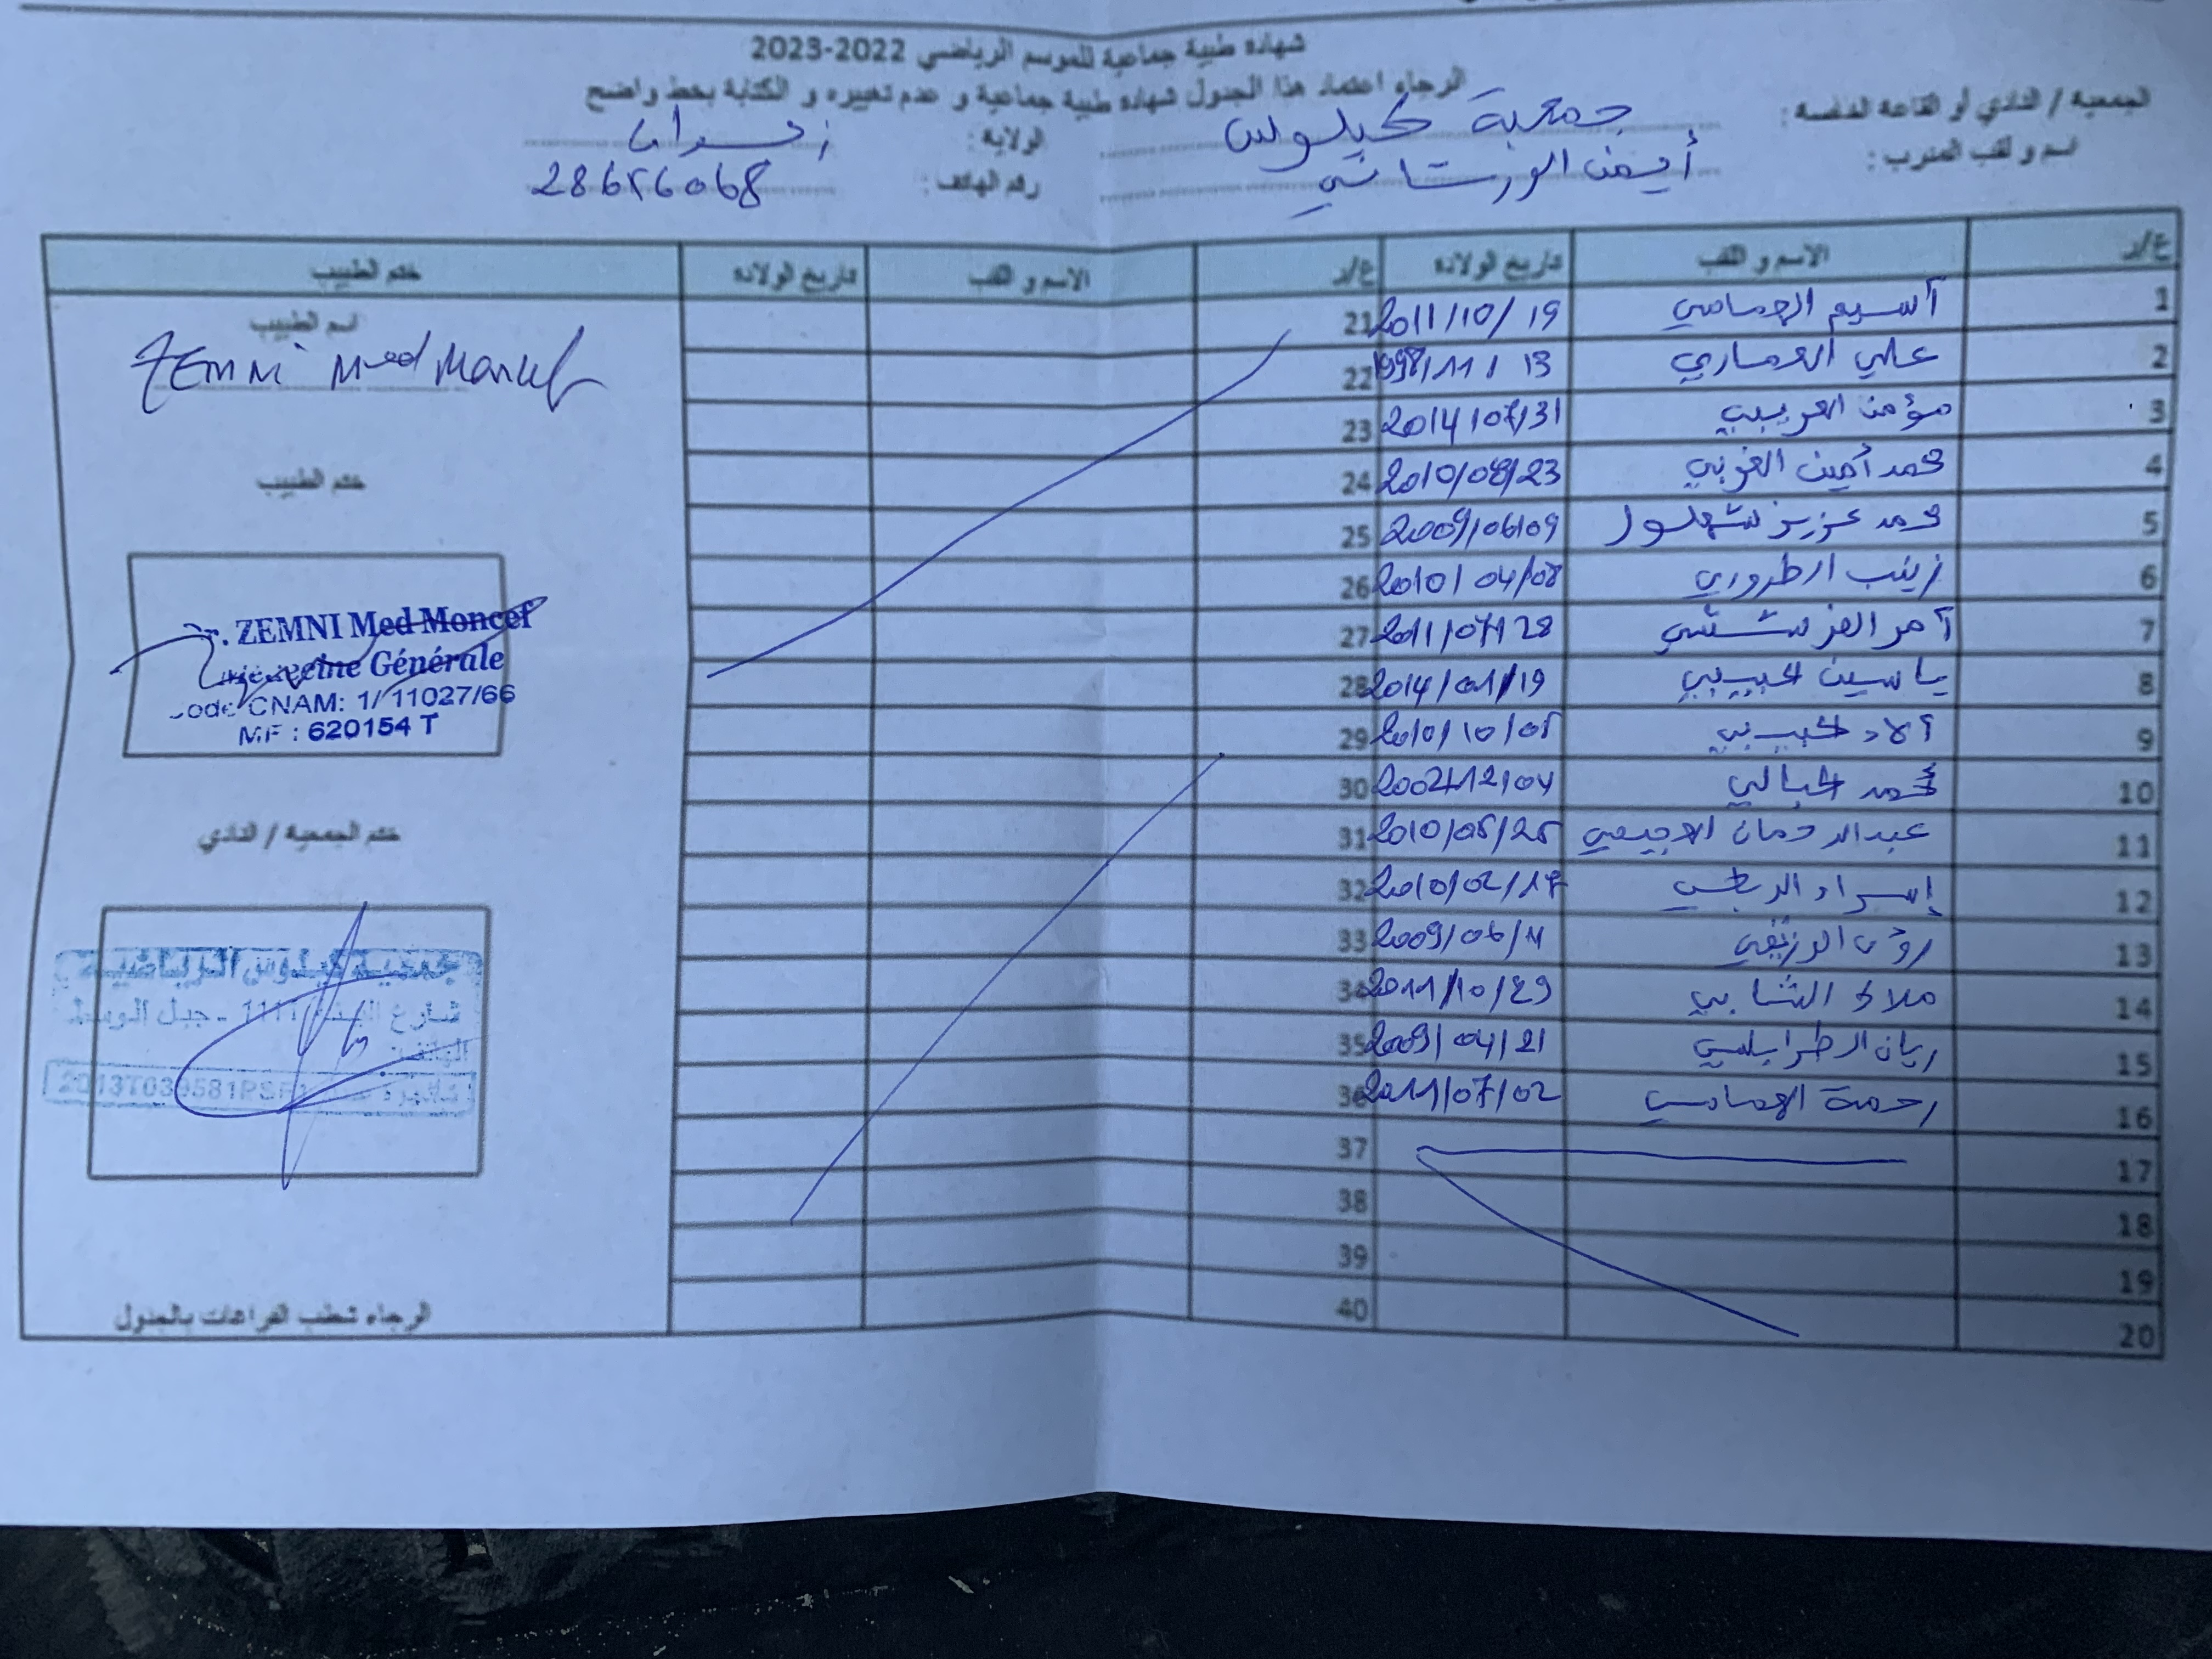 شهادة طبية جماعية للموسم الرياضي 2022-2023
الرجاء اعتماد هذا الجدول شهادة طبية جماعية و عدم تغييره و الكتابة بخط واضح
الجمعية / النادي أو القاعة الخاصة : جمعية كيلوس الولاية : زغوان
اسم و لقب المدرب : أيمن الورتاني رقم الهاتف :
ع/ر الاسم و اللقب تاريخ الولادة ع/ر الاسم و اللقب تاريخ الولادة ختم الطبيب
1 آسيم العماسي 2011/10/19 21
2 علي العماري 13 /11/ 22
3 مؤمن العريبي 2014/07/31 23
4 محمد أمين الغربي 2010/08/23 24
5 محمد عزيز شهلول 2009/06/09 25
6 زينب الطروري 2010/04/08 26
7 2011/07/28 27
8 ياسين الحبيبي 2014/01/19 28
9 الحبيبي 2010/10/05 29
10 محمد الجبالي 2002/12/04 30
11 عبد الرحمان العجيمي 2010/05/25 31
12 إسراء 2010/02/17 32
13 رؤى 2009/06/11 33
14 ملاك الشابي 2011/10/29 34
15 ريان الطرابلسي 2009/04/21 35
16 رحمة العماسي 2011/07/02 36
17 37
18 38
19 39
20 40
اسم الطبيب
ZEMNI Med Moncef
ختم الطبيب
Dr. ZEMNI Med Moncef
Médecine Générale
Code CNAM: 1/ 11027/66
MF : 620154 T
ختم الجمعية / النادي
جمعية كيلوس الرياضية
شارع 1111 - جبل الوسط
الهاتف:
الرجاء شطب الفراغات بالجدول